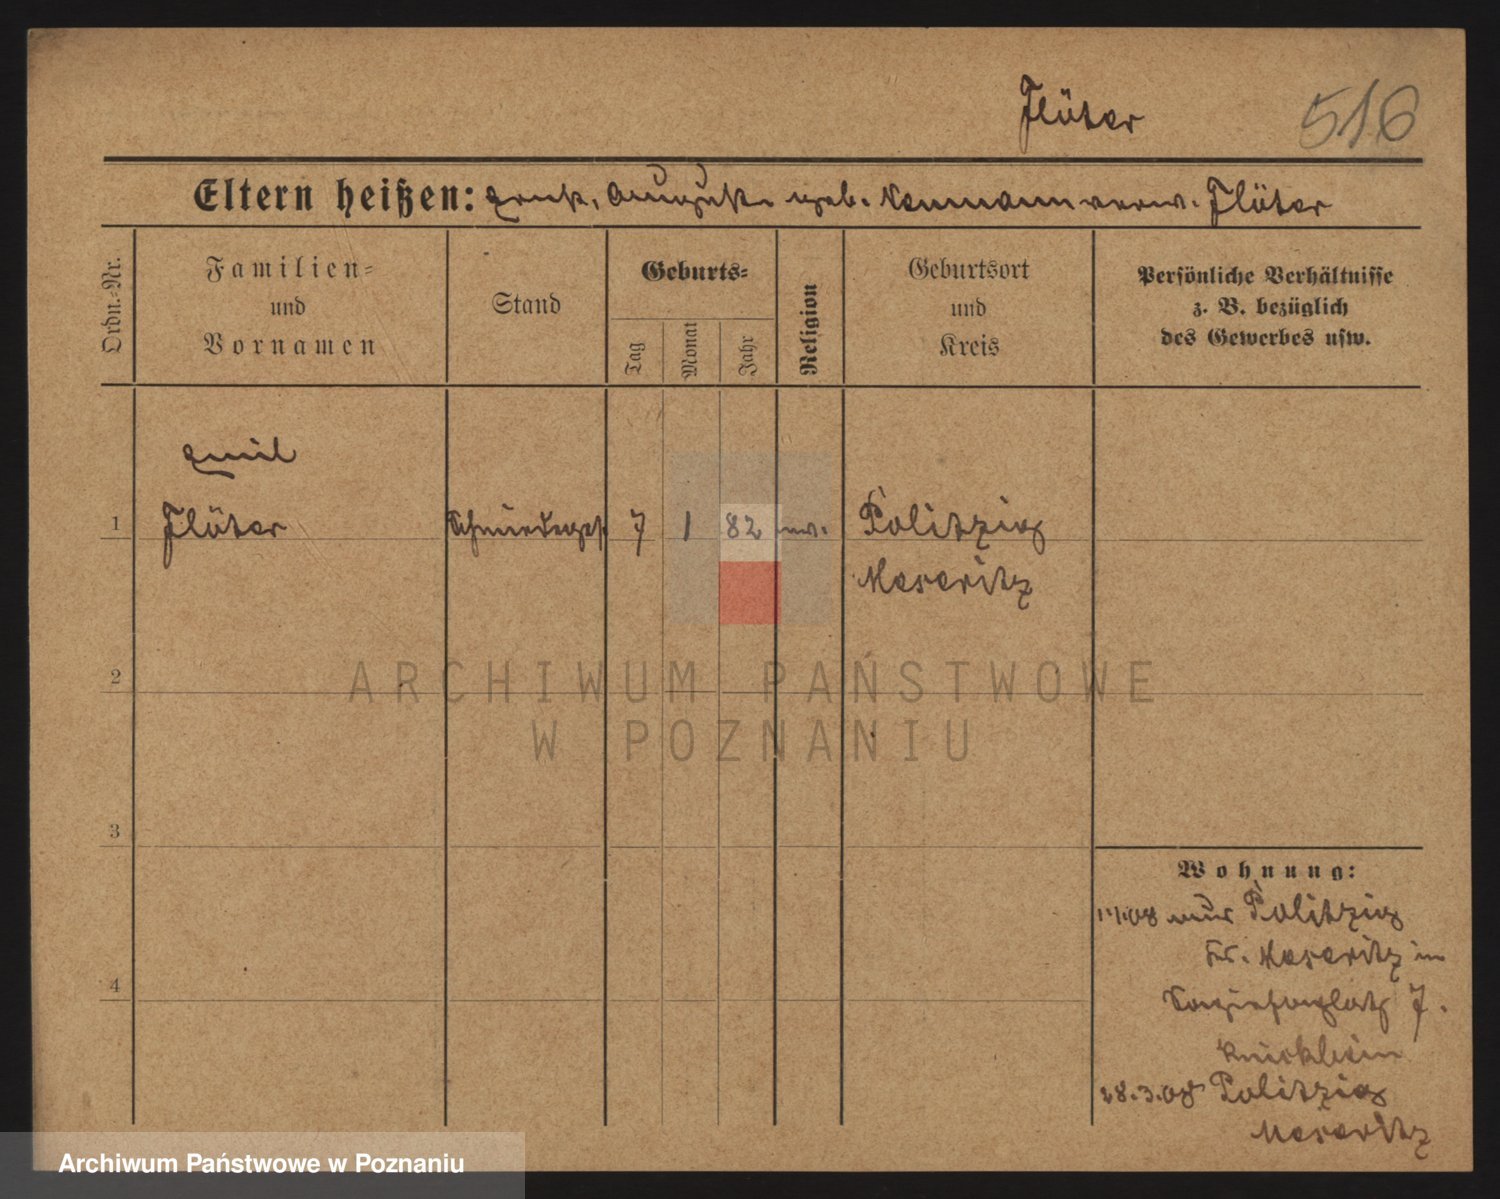 Flöter 516
Eltern heißen: Ernst, August. geb. Neumann verw. Flöter
Ordn.-Nr.
Familien-
und
Vornamen
Stand
Geburts-
Tag
Monat
Jahr
Religion
Geburtsort
und
Kreis
Persönliche Verhältnisse
z. B. bezüglich
des Gewerbes usw.
Emil
1 Flöter Schmiedeges. 7 1 82 ev. Politzig
Meseritz
2
ARCHIWUM PAŃSTWOWE
W POZNANIU
3
Wohnung:
08 aus Politzig
Kr. Meseritz in
4
7.
28.3.08 Politzig
Meseritz
Archiwum Państwowe w Poznaniu